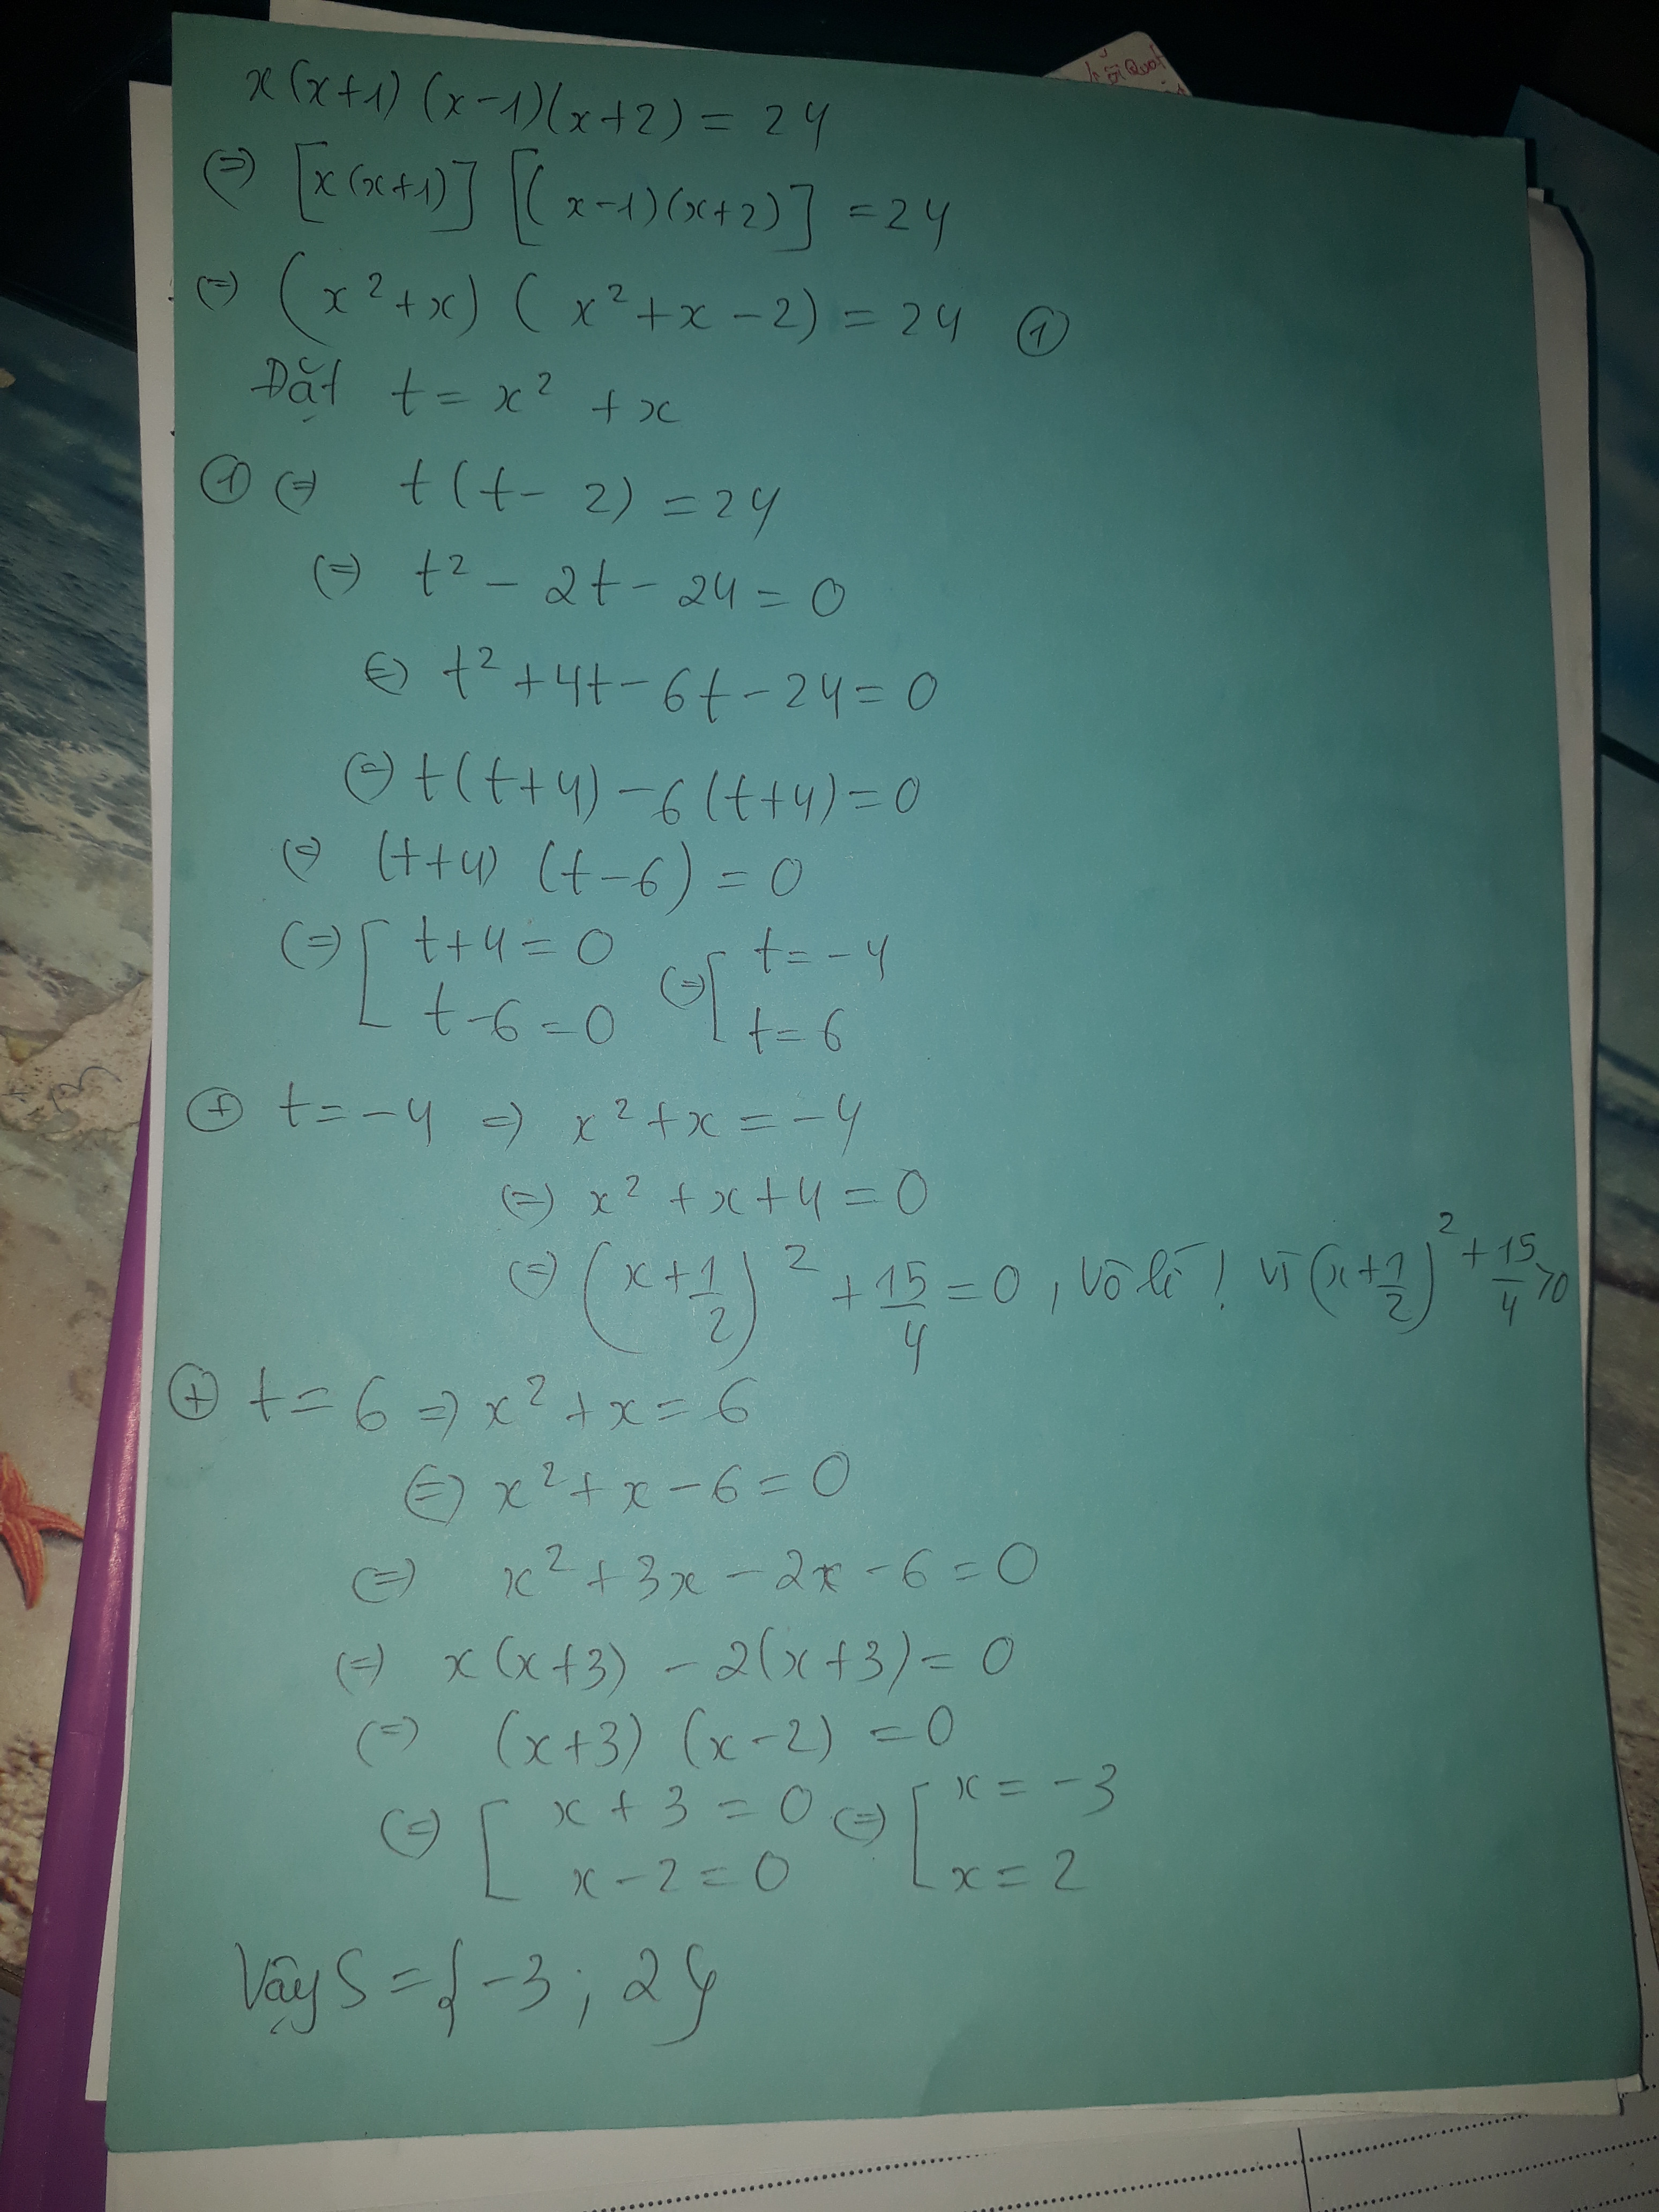 ỗi Quot
x(x+1)(x-1)(x+2) = 24
(=) [x(x+1)] [(x-1)(x+2)] = 24
(=) (x² + x) (x² + x - 2) = 24 ①
Đặt t = x² + x
① (=) t(t - 2) = 24
(=) t² - 2t - 24 = 0
(=) t² + 4t - 6t - 24 = 0
(=) t(t+4) - 6(t+4) = 0
(=) (t+4) (t-6) = 0
(=) [ t+4 = 0 (=) [ t = -4
t-6 = 0 t = 6
⊕ t = -4 => x² + x = -4
(=) x² + x + 4 = 0
(=) (x + 1/2)² + 15/4 = 0, Vô lí! vì (x + 1/2)² + 15/4 > 0
⊕ t = 6 => x² + x = 6
(=) x² + x - 6 = 0
(=) x² + 3x - 2x - 6 = 0
(=) x(x+3) - 2(x+3) = 0
(=) (x+3) (x-2) = 0
(=) [ x + 3 = 0 (=) [ x = -3
x - 2 = 0 x = 2
Vậy S = {-3; 2}